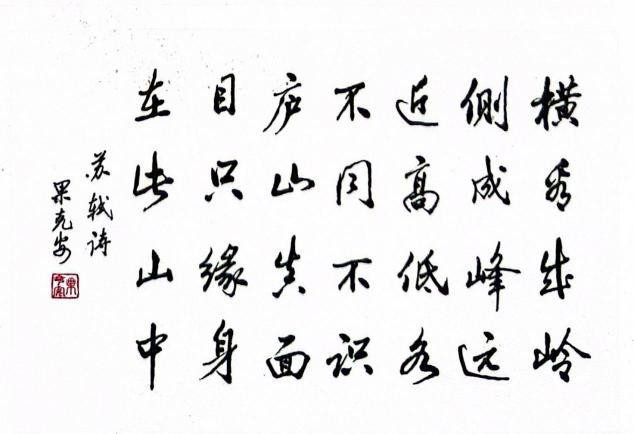 横看成岭
侧成峰远
近高低各
不同不识
庐山真面
目只缘身
在此山中
苏轼诗
果克安